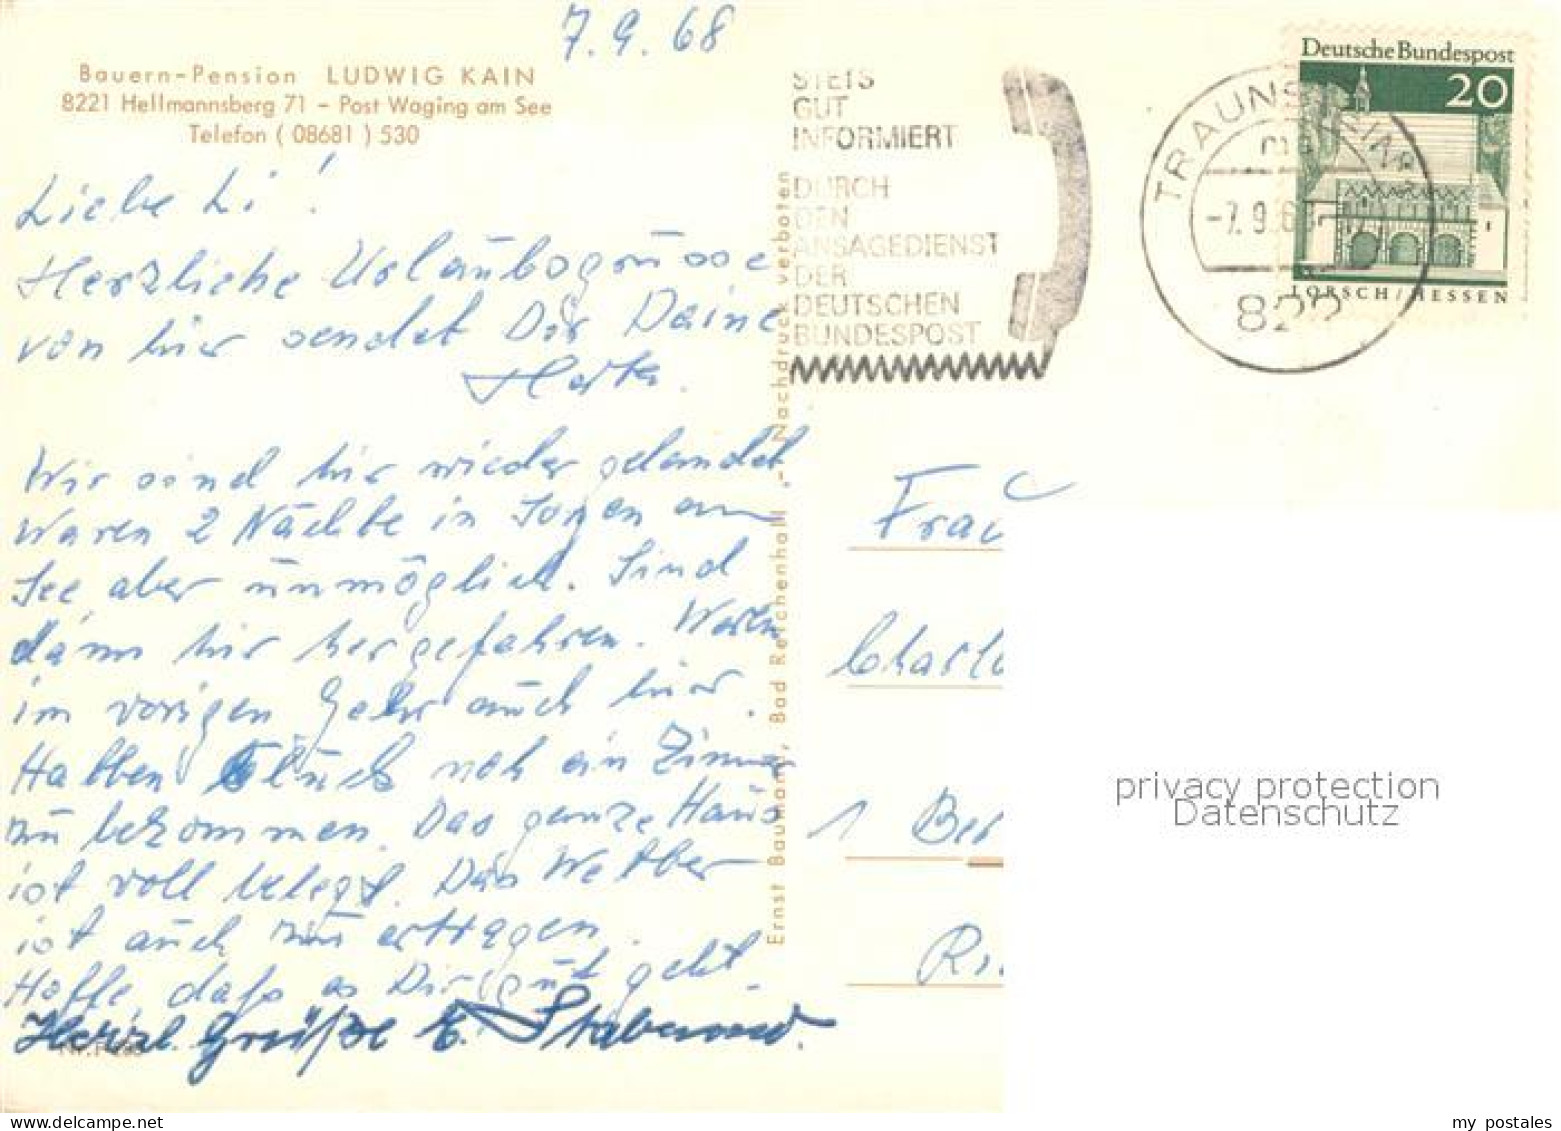 7.9.68
Bauern-Pension LUDWIG KAIN
8221 Hellmannsberg 71 - Post Waging am See
Telefon ( 08681 ) 530
Liebe Li!
Herzliche Urlaubsgrüsse
von hier sendet Dir Deine
Herta.
Wir sind hier wieder gelandet
Waren 2 Nächte in am
See aber unmöglich. Sind
dann hier hergefahren. Waren
im vorigen Jahr auch hier.
Habben Glück noch ein Zimmer
zu bekommen. Das ganze Haus
ist voll belegt. Das Wetter
ist auch zu ertragen.
Hoffe, dass es Dir gut geht.
Herzl. Grüße
Ernst Baumann, Bad Reichenhall - Nachdruck verboten
STETS
GUT
INFORMIERT
DURCH
DEN
ANSAGEDIENST
DER
DEUTSCHEN
BUNDESPOST
TRAUNSTEIN
-7.9.68
822
Deutsche Bundespost
20
LORSCH/HESSEN
Frau
Charlo
1 Ber
privacy protection
Datenschutz
my postales